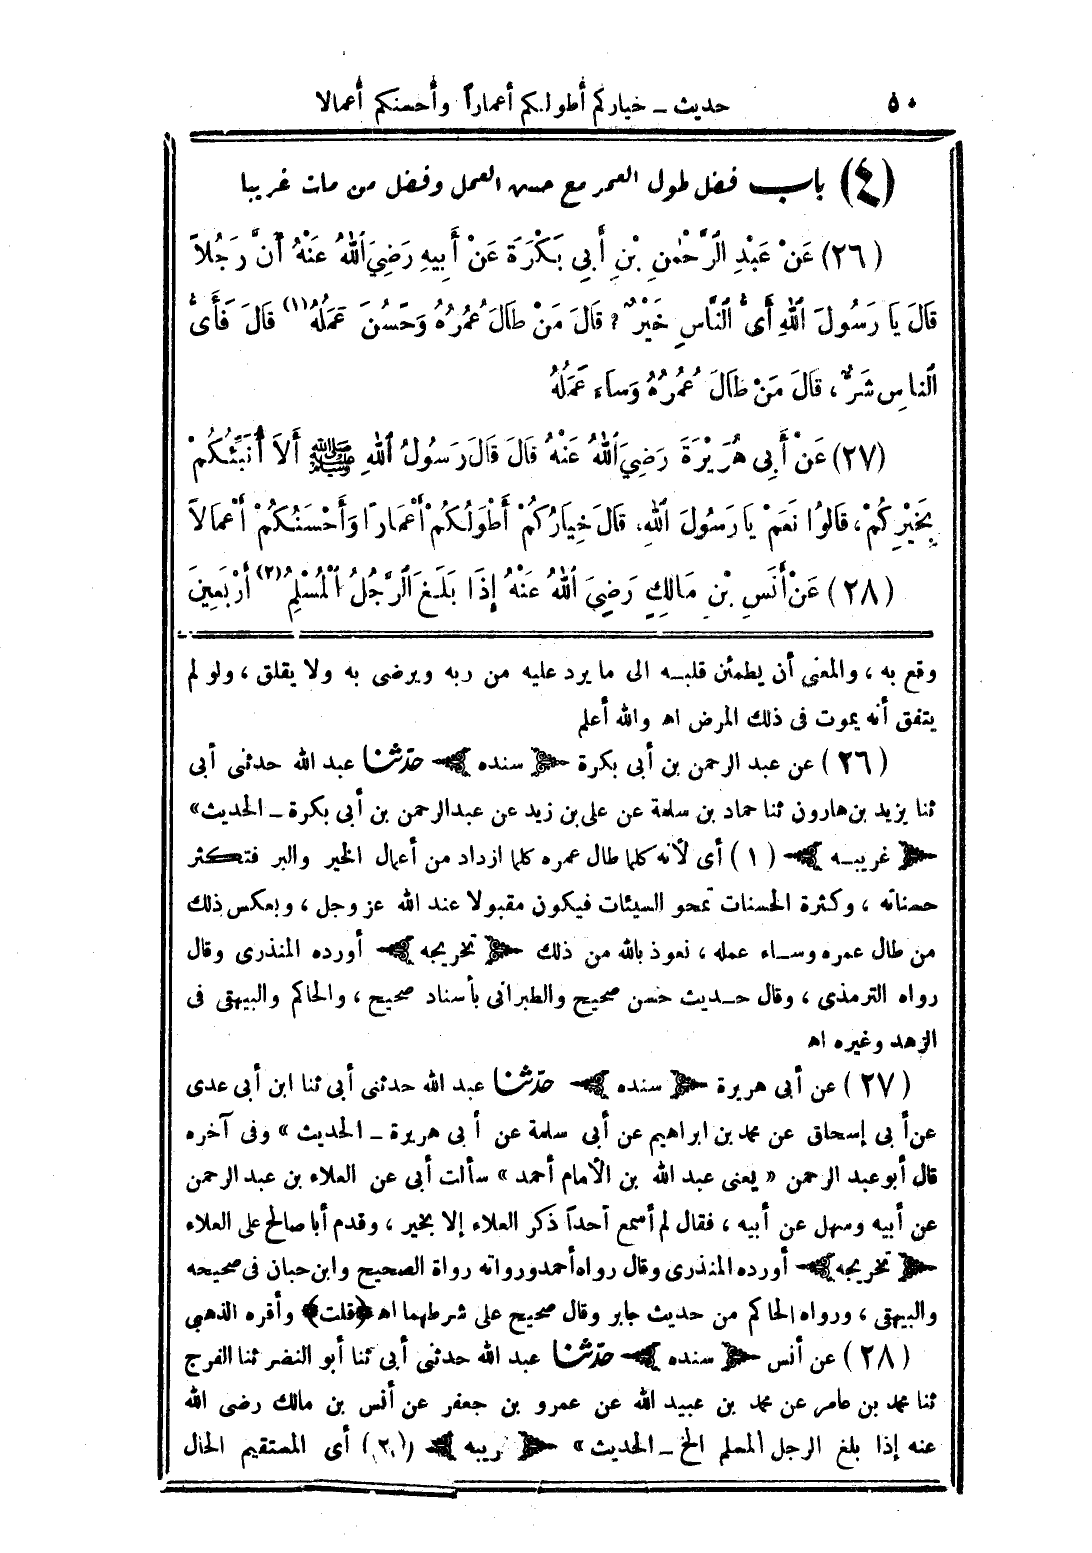 ٥٠ حديث ــ خياركم أطولكم أعماراً وأحسنكم أعمالا
(٤) باب فضل طول العمر مع حسن العمل وفضل من مات غريبا
(٢٦) عَنْ عَبْدِ الرَّحْمٰنِ بْنِ أَبِي بَكْرَةَ عَنْ أَبِيهِ رَضِيَ اللهُ عَنْهُ أَنَّ رَجُلاً
قَالَ يَا رَسُولَ اللهِ أَىُّ النَّاسِ خَيْرٌ؟ قَالَ مَنْ طَالَ عُمُرُهُ وَحَسُنَ عَمَلُهُ (١) قَالَ فَأَىُّ
النَّاسِ شَرٌّ، قَالَ مَنْ طَالَ عُمُرُهُ وَسَاءَ عَمَلُهُ
(٢٧) عَنْ أَبِي هُرَيْرَةَ رَضِيَ اللهُ عَنْهُ قَالَ قَالَ رَسُولُ اللهِ ﷺ أَلاَ أُنَبِّئُكُمْ
بِخَيْرِكُمْ، قَالُوا نَعَمْ يَا رَسُولَ اللهِ، قَالَ خِيَارُكُمْ أَطْوَلُكُمْ أَعْمَارًا وَأَحْسَنُكُمْ أَعْمَالاً
(٢٨) عَنْ أَنَسِ بْنِ مَالِكٍ رَضِيَ اللهُ عَنْهُ إِذَا بَلَغَ الرَّجُلُ الْمُسْلِمُ (٢) أَرْبَعِينَ
وقع به ، والمعنى أن يطمئن قلبه الى ما يرد عليه من ربه ويرضى به ولا يقلق ، ولو لم
يتفق أنه يموت فى ذلك المرض اه والله أعلم
(٢٦) عن عبد الرحمن بن أبى بكرة ﴿ سنده ﴾ حدّثنا عبد الله حدثنى أبى
ثنا يزيد بن هارون ثنا حماد بن سلمة عن على بن زيد عن عبد الرحمن بن أبى بكرة ــ الحديث»
﴿ غريبه ﴾ (١) أى لأنه كلما طال عمره كلما ازداد من أعمال الخير والبر فتكثر
حسناته ، وكثرة الحسنات تمحو السيئات فيكون مقبولا عند الله عز وجل ، وبعكس ذلك
من طال عمره وساء عمله ، نعوذ بالله من ذلك ﴿ تخريجه ﴾ أورده المنذرى وقال
رواه الترمذى ، وقال حديث حسن صحيح والطبرانى بأسناد صحيح ، والحاكم والبيهقى فى
الزهد وغيره اه
(٢٧) عن أبى هريرة ﴿ سنده ﴾ حدّثنا عبد الله حدثنى أبى ثنا ابن أبى عدى
عن أبى إسحاق عن محمد بن ابراهيم عن أبى سلمة عن أبى هريرة ــ الحديث » وفى آخره
قال أبو عبد الرحمن « يعنى عبد الله بن الأمام أحمد » سألت أبى عن العلاء بن عبد الرحمن
عن أبيه وسهل عن أبيه ، فقال لم أسمع أحداً ذكر العلاء إلا بخير ، وقدم أبا صالح على العلاء
﴿ تخريجه ﴾ أورده المنذرى وقال رواه أحمد ورواته رواة الصحيح وابن حبان فى صحيحه
والبيهقى ، ورواه الحاكم من حديث جابر وقال صحيح على شرطهما اه ﴿قلت﴾ وأقره الذهبي
(٢٨) عن أنس ﴿ سنده ﴾ حدّثنا عبد الله حدثنى أبى ثنا أبو النضر ثنا الفرج
ثنا محمد بن عامر عن محمد بن عبيد الله عن عمرو بن جعفر عن أنس بن مالك رضى الله
عنه إذا بلغ الرجل المسلم الخ ــ الحديث » ﴿ غريبه ﴾ (٢) أى المستقيم الحال